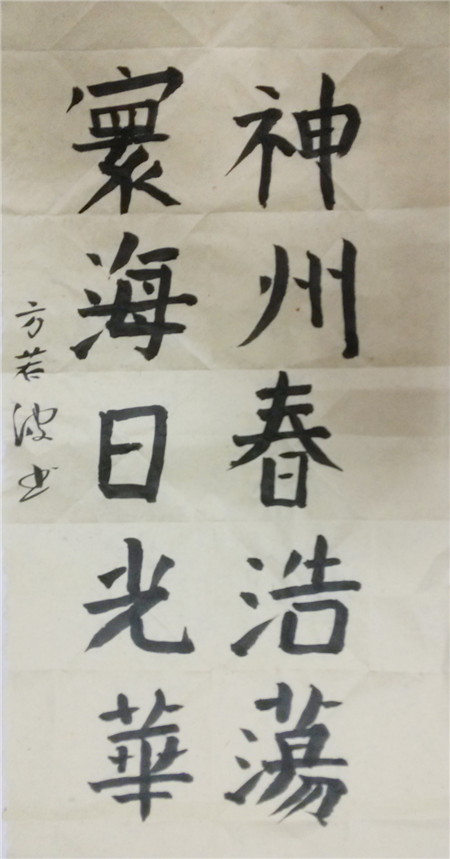 神州春浩蕩
寰海日光華
方若波书